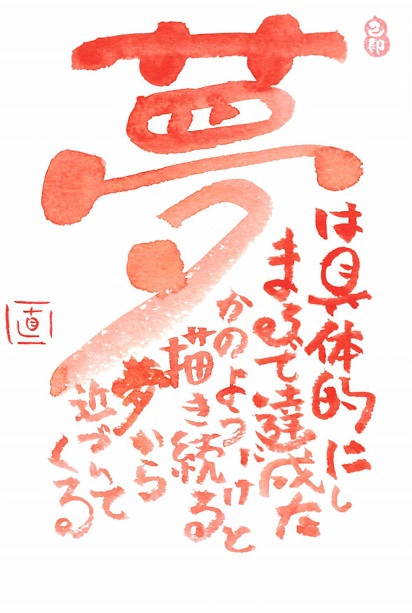 夢
は具体的に
まるで達成した
かのように
描き続けると
夢から
近づいて
くる。
直